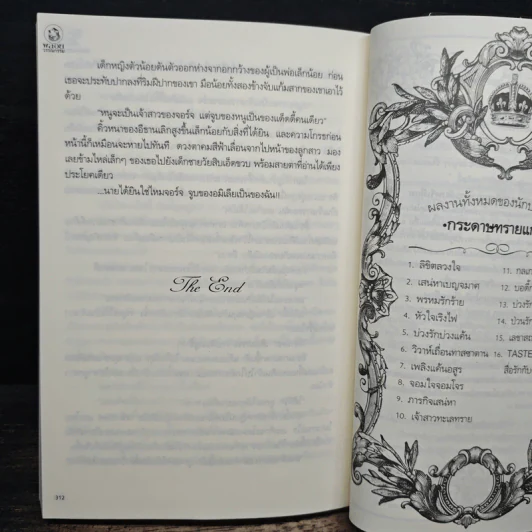 พลอย
วรรณกรรม
เด็กหญิงตัวน้อยดันตัวออกห่างจากอกกว้างของผู้เป็นพ่อเล็กน้อย ก่อน
เธอจะประทับปากลงที่ริมฝีปากของเขา มือน้อยทั้งสองข้างจับแก้มสากของเขาเอาไว้
ด้วย
"หนูจะเป็นเจ้าสาวของจอร์จ แต่จูบของหนูเป็นของแด๊ดดี้คนเดียว"
คิ้วหนาของอีธานเลิกสูงขึ้นเล็กน้อยกับสิ่งที่ได้ยิน และความโกรธก่อน
หน้านี้ก็เหมือนจะหายไปทันที ดวงตาคมสีฟ้าเลื่อนจากใบหน้าของลูกสาว มอง
เลยข้ามไหล่เล็กๆ ของเธอไปยังเด็กชายวัยสิบเอ็ดขวบ พร้อมสายตาที่อ่านได้เพียง
ประโยคเดียว
...นายได้ยินใช่ไหมจอร์จ จูบของอมิเลียเป็นของฉัน!!
The End
312
ผลงานทั้งหมดของนัก
•กระดาษทราย
1. ลิขิตลวงใจ
2. เสน่หาเบญจมาศ
3. พรหมรักร้าย
4. หัวใจเริงไฟ
5. บ่วงรักบ่วงแค้น
6. วิวาห์เถื่อนทาสซาตาน
7. เพลิงแค้นอสูร
8. จอมใจจอมโจร
9. ภารกิจเสน่หา
10. เจ้าสาวทะเลทราย
11. กล
12. บอดี้
13. บ่วงรัก
14. ป่วนรัก
15. เลขา
16. TASTE
สื่อรักกับ